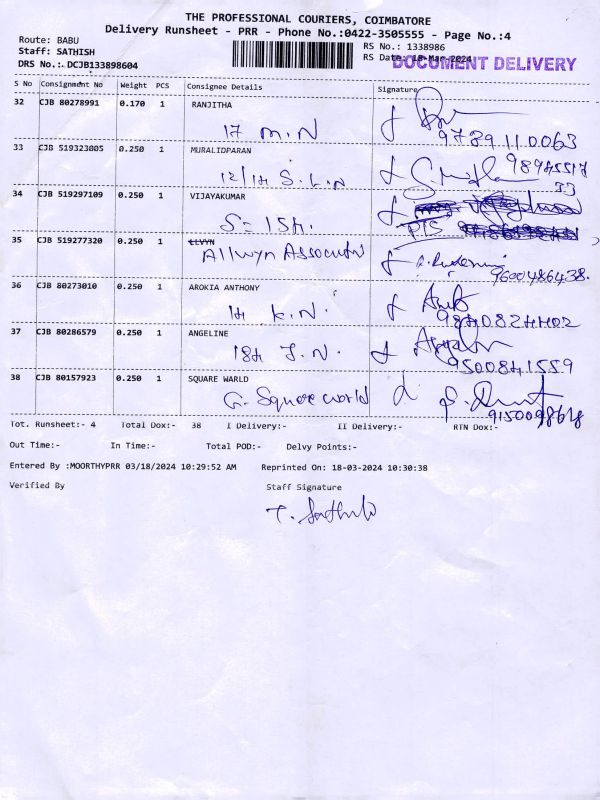 THE PROFESSIONAL COURIERS, COIMBATORE
Delivery Runsheet - PRR - Phone No.:0422-3505555 - Page No.:4
Route: BABU
Staff: SATHISH
DRS No.: DCJB133898604
RS No.: 1338986
RS Date: 18-Mar-2024
DOCUMENT DELIVERY
S No Consignment No Weight PCS Consignee Details Signature
32 CJB 80278991 0.170 1 RANJITHA
17 M.N
9789110063
33 CJB 519323005 0.250 1 MURALIDPARAN
12/14 S.L.N
98945517
33
34 CJB 519297109 0.250 1 VIJAYAKUMAR
S= 154.
P/S
35 CJB 519277320 0.250 1 ELVYN
Allwyn Associates
9600486438.
36 CJB 80273010 0.250 1 AROKIA ANTHONY
14 K.N.
9840824402
37 CJB 80286579 0.250 1 ANGELINE
184 J.N.
9500841559
38 CJB 80157923 0.250 1 SQUARE WARLD
G. Square world
Tot. Runsheet:- 4 Total Dox:- 38 I Delivery:- II Delivery:- RTN Dox:-
Out Time:- In Time:- Total POD:- Delvy Points:-
Entered By :MOORTHYPRR 03/18/2024 10:29:52 AM Reprinted On: 18-03-2024 10:30:38
Verified By Staff Signature